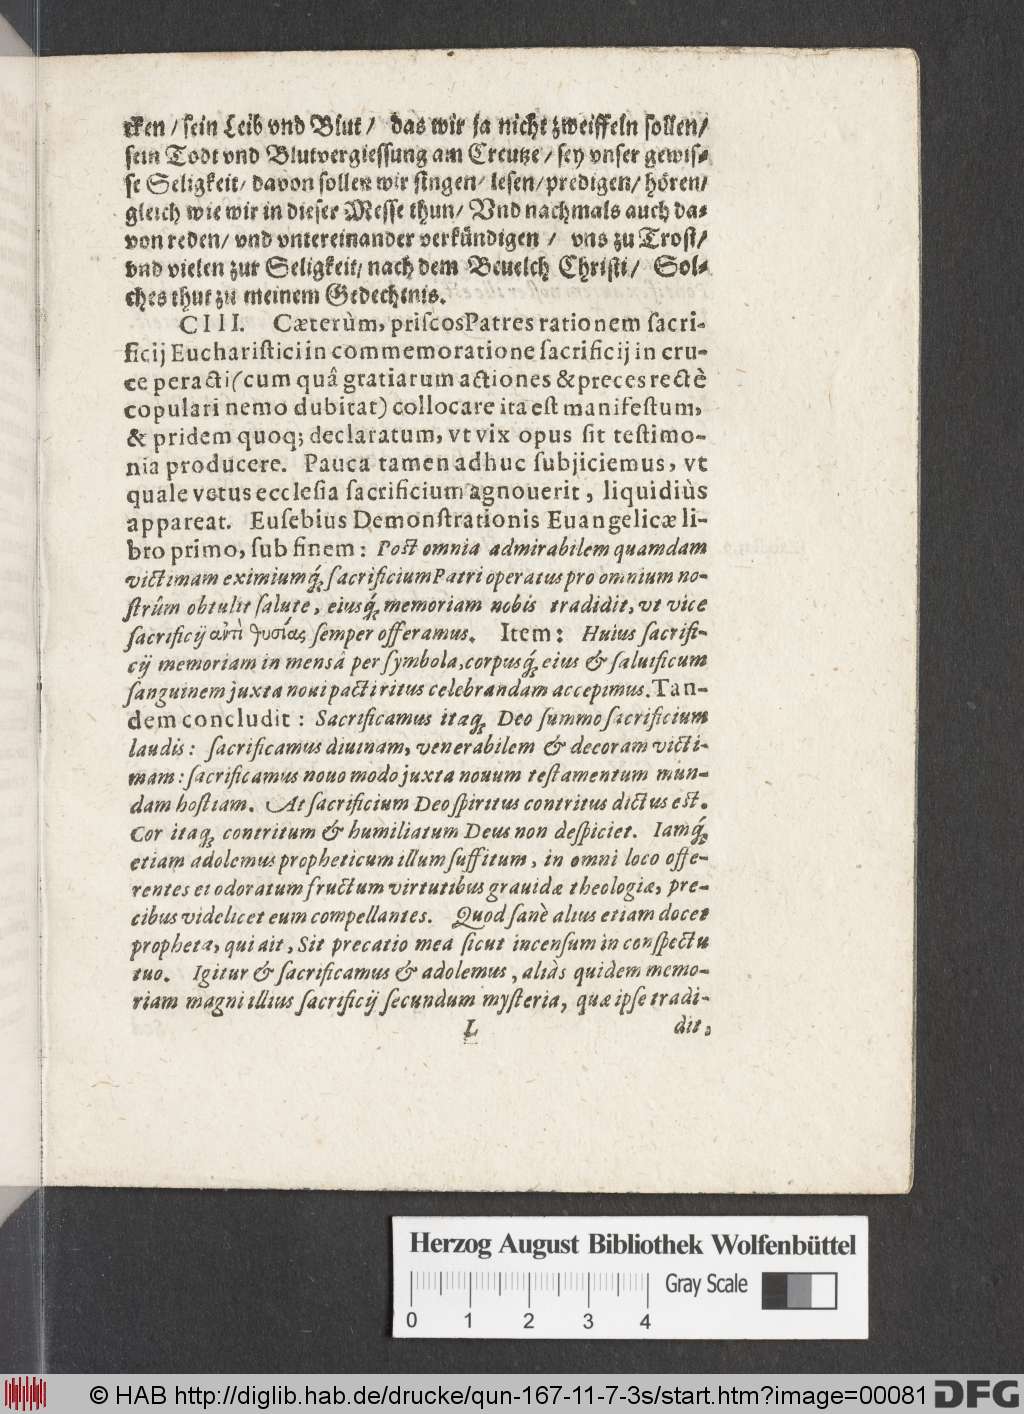 cken / sein Leib vnd Blut / das wir ja nicht zweiffeln sollen /
sein Todt vnd Blutvergiessung am Creutze / sey vnser gewis⸗
se Seligkeit / davon sollen wir singen / lesen / predigen / hören /
gleich wie wir in dieser Messe thun / Vnd nachmals auch da⸗
von reden / vnd vntereinander verkündigen / vns zu Trost /
vnd vielen zur Seligkeit / nach dem Beuelch Christi / Sol⸗
ches thut zu meinem Gedechtnis.
CIII. Cæterùm, priſcos Patres rationem ſacri-
ficij Euchariſtici in commemoratione ſacrificij in cru-
ce peracti (cum quâ gratiarum actiones & preces rectè
copulari nemo dubitat) collocare ita eſt manifeſtum,
& pridem quoq; declaratum, vt vix opus ſit teſtimo-
nia producere. Pauca tamen adhuc ſubjiciemus, vt
quale vetus eccleſia ſacrificium agnouerit, liquidiùs
appareat. Euſebius Demonſtrationis Euangelicæ li-
bro primo, ſub finem: Poſt omnia admirabilem quamdam
victimam eximiumq́; ſacrificium Patri operatus pro omnium no-
ſtrûm obtulit ſalute, eiusq́; memoriam nobis tradidit, vt vice
ſacrificij αντὶ θυσίας ſemper offeramus. Item: Huius ſacrifi-
cij memoriam in mensâ per ſymbola, corpusq́; eius & ſaluificum
ſanguinem juxta noui pacti ritus celebrandam accepimus. Tan-
dem concludit: Sacrificamus itaq; Deo ſummo ſacrificium
laudis: ſacrificamus diuinam, venerabilem & decoram victi-
mam: ſacrificamus nouo modo juxta nouum teſtamentum mun-
dam hoſtiam. At ſacrificium Deo ſpiritus contritus dictus eſt.
Cor itaq; contritum & humiliatum Deus non deſpiciet. Iamq́;
etiam adolemus propheticum illum ſuffitum, in omni loco offe-
rentes ei odoratum fructum virtutibus grauidæ theologiæ, pre-
cibus videlicet eum compellantes. Quod ſanè alius etiam docet
propheta, qui ait, Sit precatio mea ſicut incenſum in conſpectu
tuo. Igitur & ſacrificamus & adolemus, aliàs quidem memo-
riam magni illius ſacrificij ſecundum myſteria, quæ ipſe tradi-
L dit,
Herzog August Bibliothek Wolfenbüttel
Gray Scale
0 1 2 3 4
© HAB http://diglib.hab.de/drucke/qun-167-11-7-3s/start.htm?image=00081 DFG